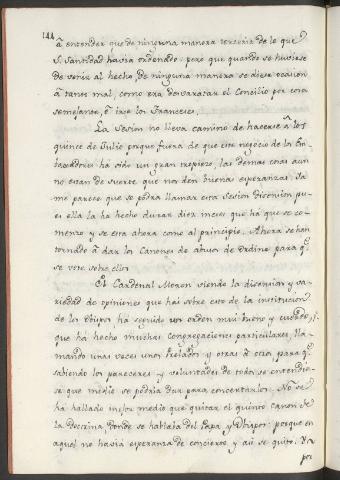 144
â entender que de ninguna manera torceria de lo que
S. Santidad havia ordenado: pero que quando se huviese
de venir al hecho, de ninguna manera se diese ocasion
â tanto mal, como era desvaratar el Concilio por cosa
semejante, ô irse los Franceses.
La Sesion no lleva camino de hacerse â los
quince de Julio porque fuera de que este negocio de los
ha sido un gran tropiezo, las demas cosas aun
no estan de suerte que nos den buena esperanza.
me parece que se podrá llamar esta Sesion
ella la ha hecho durar diez meses que há que se co-
menzo y se está ahora como al principio. Ahora se han
tornado â dar los Canones de abusos de Ordine para q.e
se vote sobre ellos.
El Cardenal Moron viendo la disension y va-
riedad de opiniones que hai sobre esto de la institucion
de los Obispos há seguido un orden mui bueno y cuerdo,
que há hecho muchas Congregaciones particulares, lla-
mando unas veces unos Prelados y otras â otros para q.e
sabiendo los pareceres y voluntades de todos se entendie-
se que medio se podria dar para concertarlos. No se
há hallado mejor medio que quitar el quinto Canon de
la Doctrina donde se hablava del Papa y Obispos: porque en
aquel no havia esperanza de concierto y asi se quitó.
por